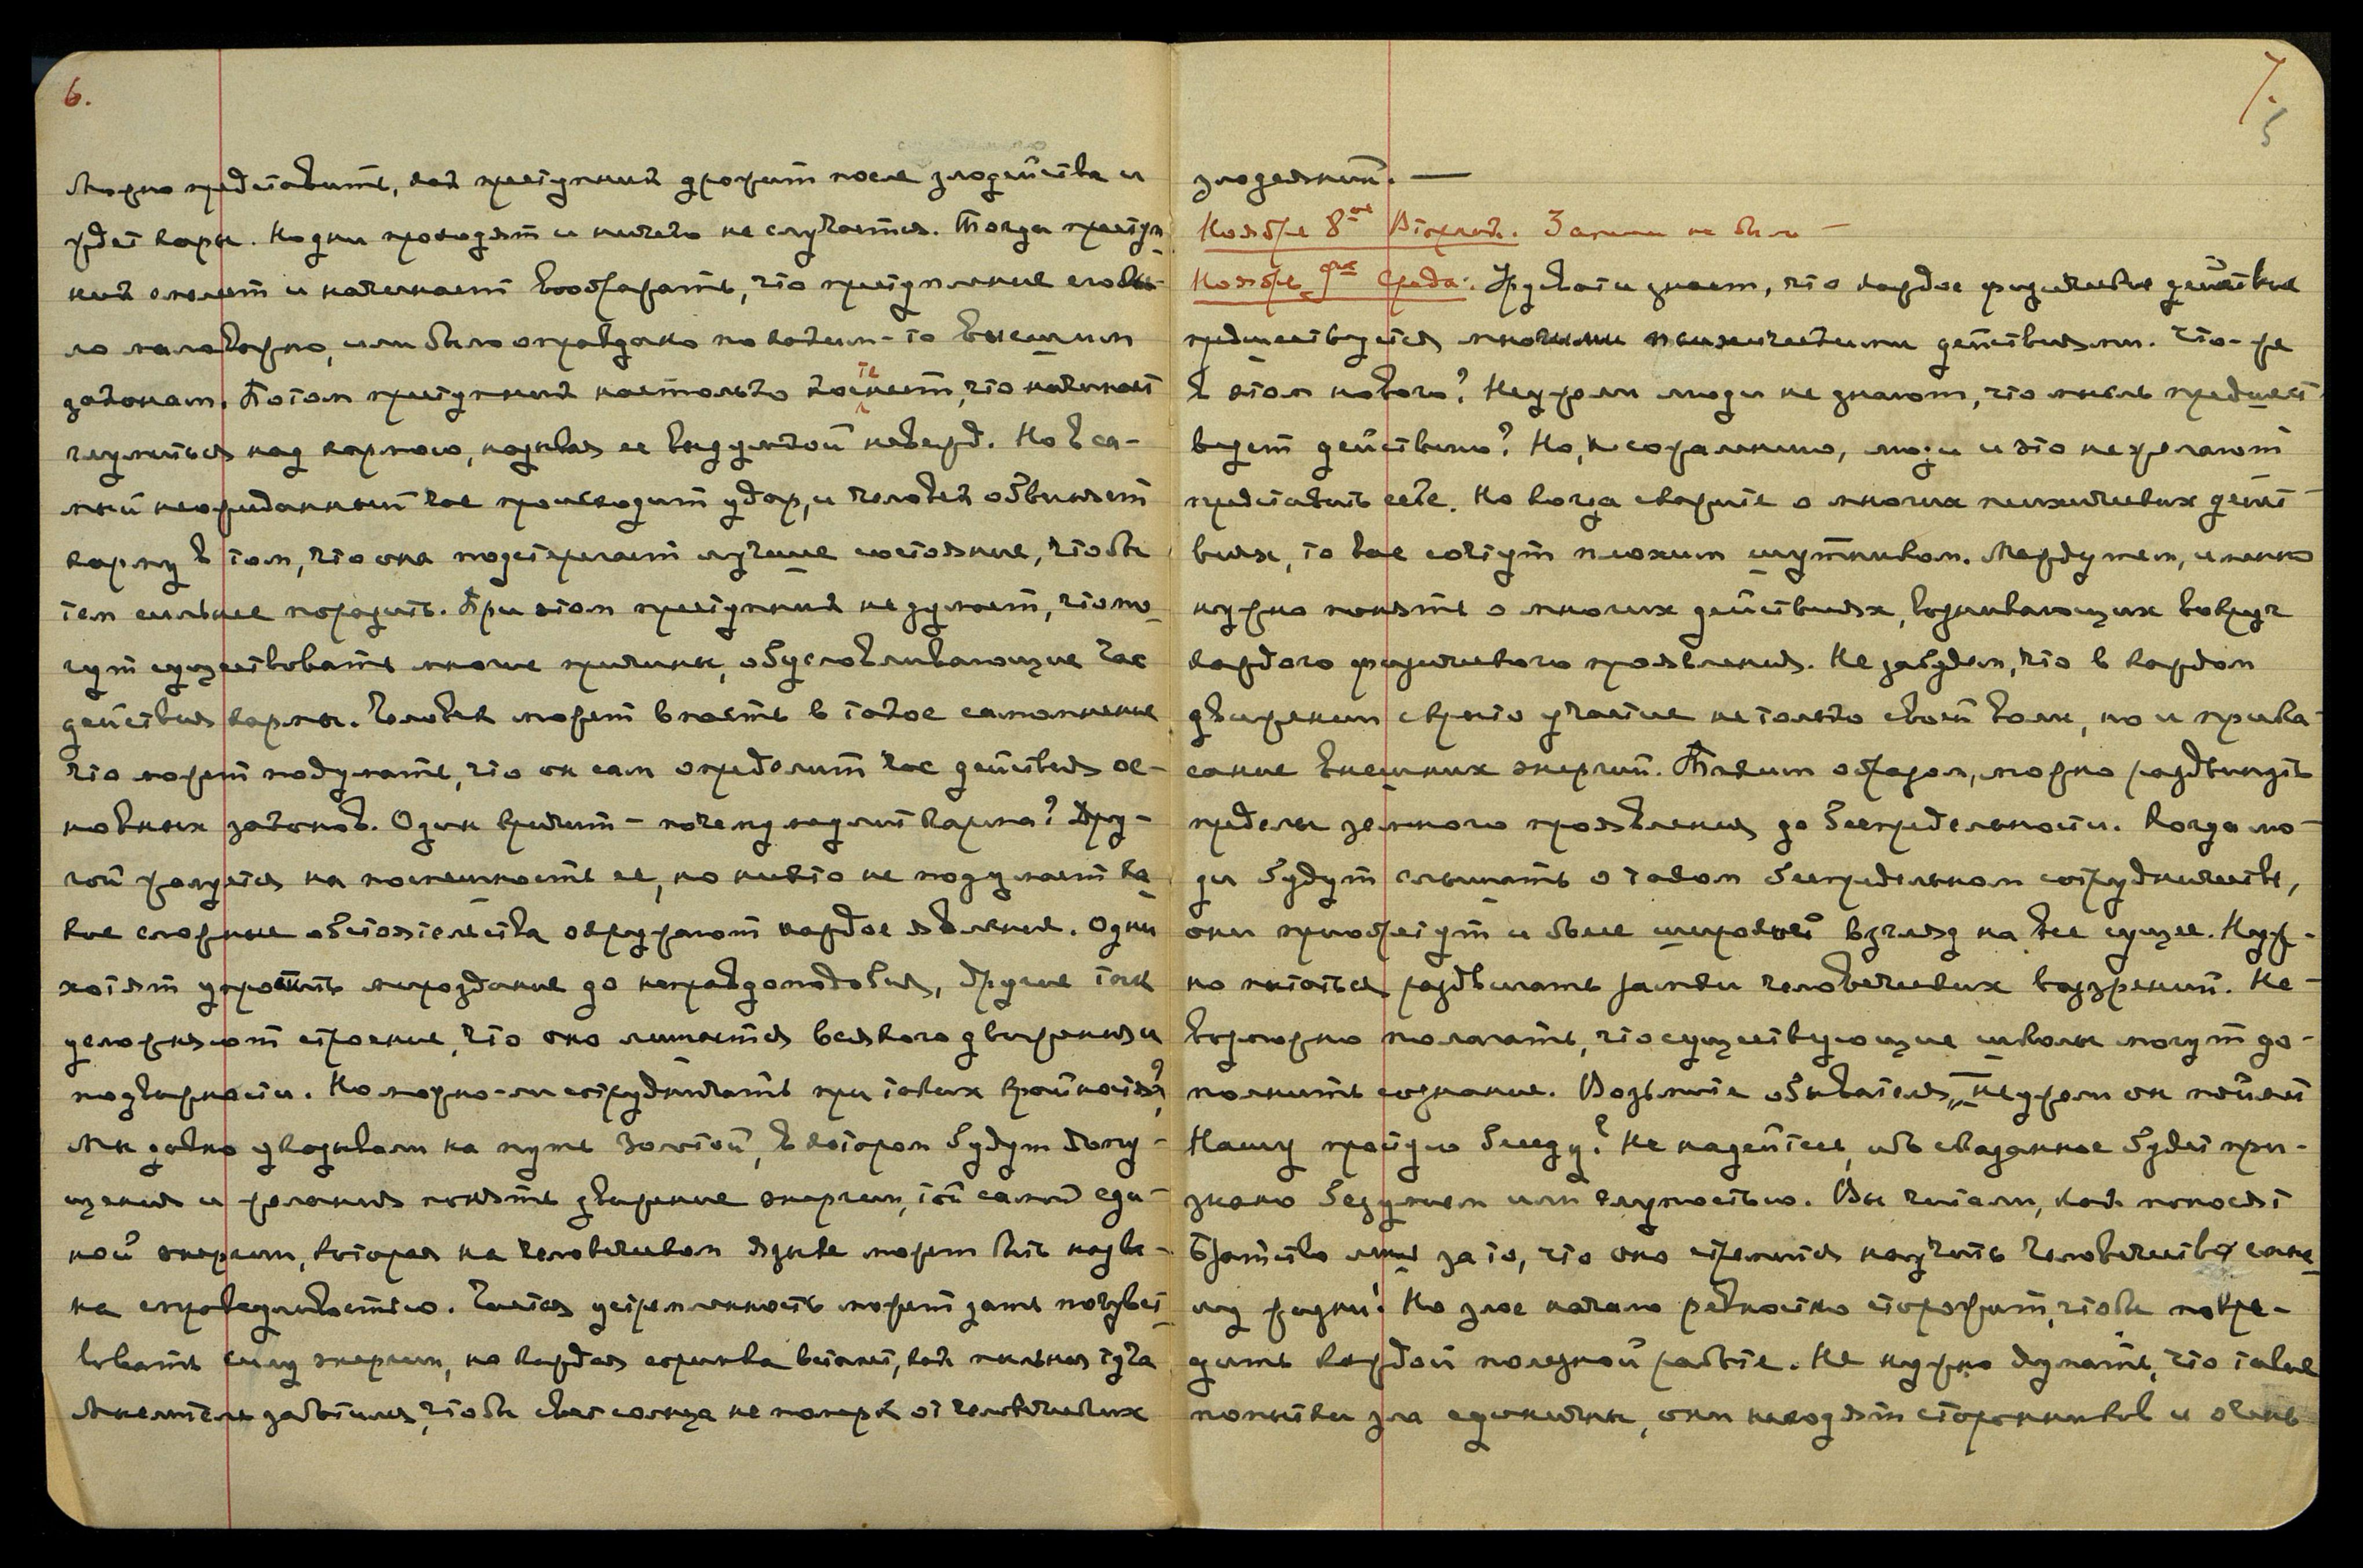 6.
Можно представить, как преступник дрожит после злодейства и
ждет кары. Но дни проходят и ничего не случается. Тогда преступ-
ник смелеет и начинает воображать, что преступление его бы-
ло маловажно, или было оправдано по каким-то высшим
законам. Потом преступник настолько костенеет, что начинает
глумиться над кармою, называя ее выдумкой невежд. Но в са-
мый неожиданный час происходит удар, и человек обвиняет
карму в том, что она подстерегает лучшее состояние, чтобы
тем сильнее поразить. При этом преступник не думает, что мо-
гут существовать многие причины, обуславливающие час
действия кармы. Человек может впасть в такое самомнение
что может подумать, что он сам определит час действия ос-
новных законов. Один кричит – почему медлит карма? Дру-
гой жалуется на поспешность ее, но никто не подумает ка-
кие сложные обстоятельства окружают каждое явление. Одни
хотят упростить мироздание до неправдоподобия, другие так
усложняют строение, что оно лишается всякого движения и
подвижности. Но можно-ли сотрудничать при таких крайностях?
Мы давно указывали на путь Золотой, в котором будут допу-
щения и желания понять движение энергии, той самой еди-
ной энергии, которая на человеческом языке может быть назва-
на справедливостью. Чистая устремленность может дать почувст-
вовать силу энергии, но каждая соринка встанет, как пыльная туча
Мыслитель заботился, чтобы свет солнца не померк от человеческих
7.
5
злодеяний. —
Ноябрь 8ое Вторник. Записи не было –
Ноябрь 9ое Среда: Урусвати знает, что каждое физическое действие
предшествуется многими психическими действиями. Что-же
в этом нового? Неужели люди не знают, что мысль предшест-
вует действию? Но, к сожалению, люди и это не желают
представить себе. Но когда скажите о многих психических дейст-
виях, то вас сочтут плохим шутником. Между тем, именно
нужно понять о многих действиях, возникающих вокруг
каждого физического проявления. Не забудем, что в каждом
движении скрыто участие не только своей воли, но и прика-
сание внешних энергий. Таким образом, можно раздвинуть
пределы земного проявления до беспредельности. Когда лю-
ди будут слышать о таком беспредельном сотрудничестве,
они приобретут и более широкий взгляд на все сущее. Нуж-
но пытаться раздвигать рамки человеческих воззрений. Не-
возможно полагать, что существующие школы могут до-
полнить сознание. Возьмите обывателя, „неужели он поймет
Нашу простую беседу? Не надейтесь, ибо сказанное будет при-
знано безумием или глупостью. Вы читали, как поносят
Братство за то, что оно стремится научить человечество
жизни! Но злое начало ревностно сторожит, чтобы повре-
дить каждой полезной работе. Не нужно думать, что такие
попытки зла единичны, они находят сторонников и очень